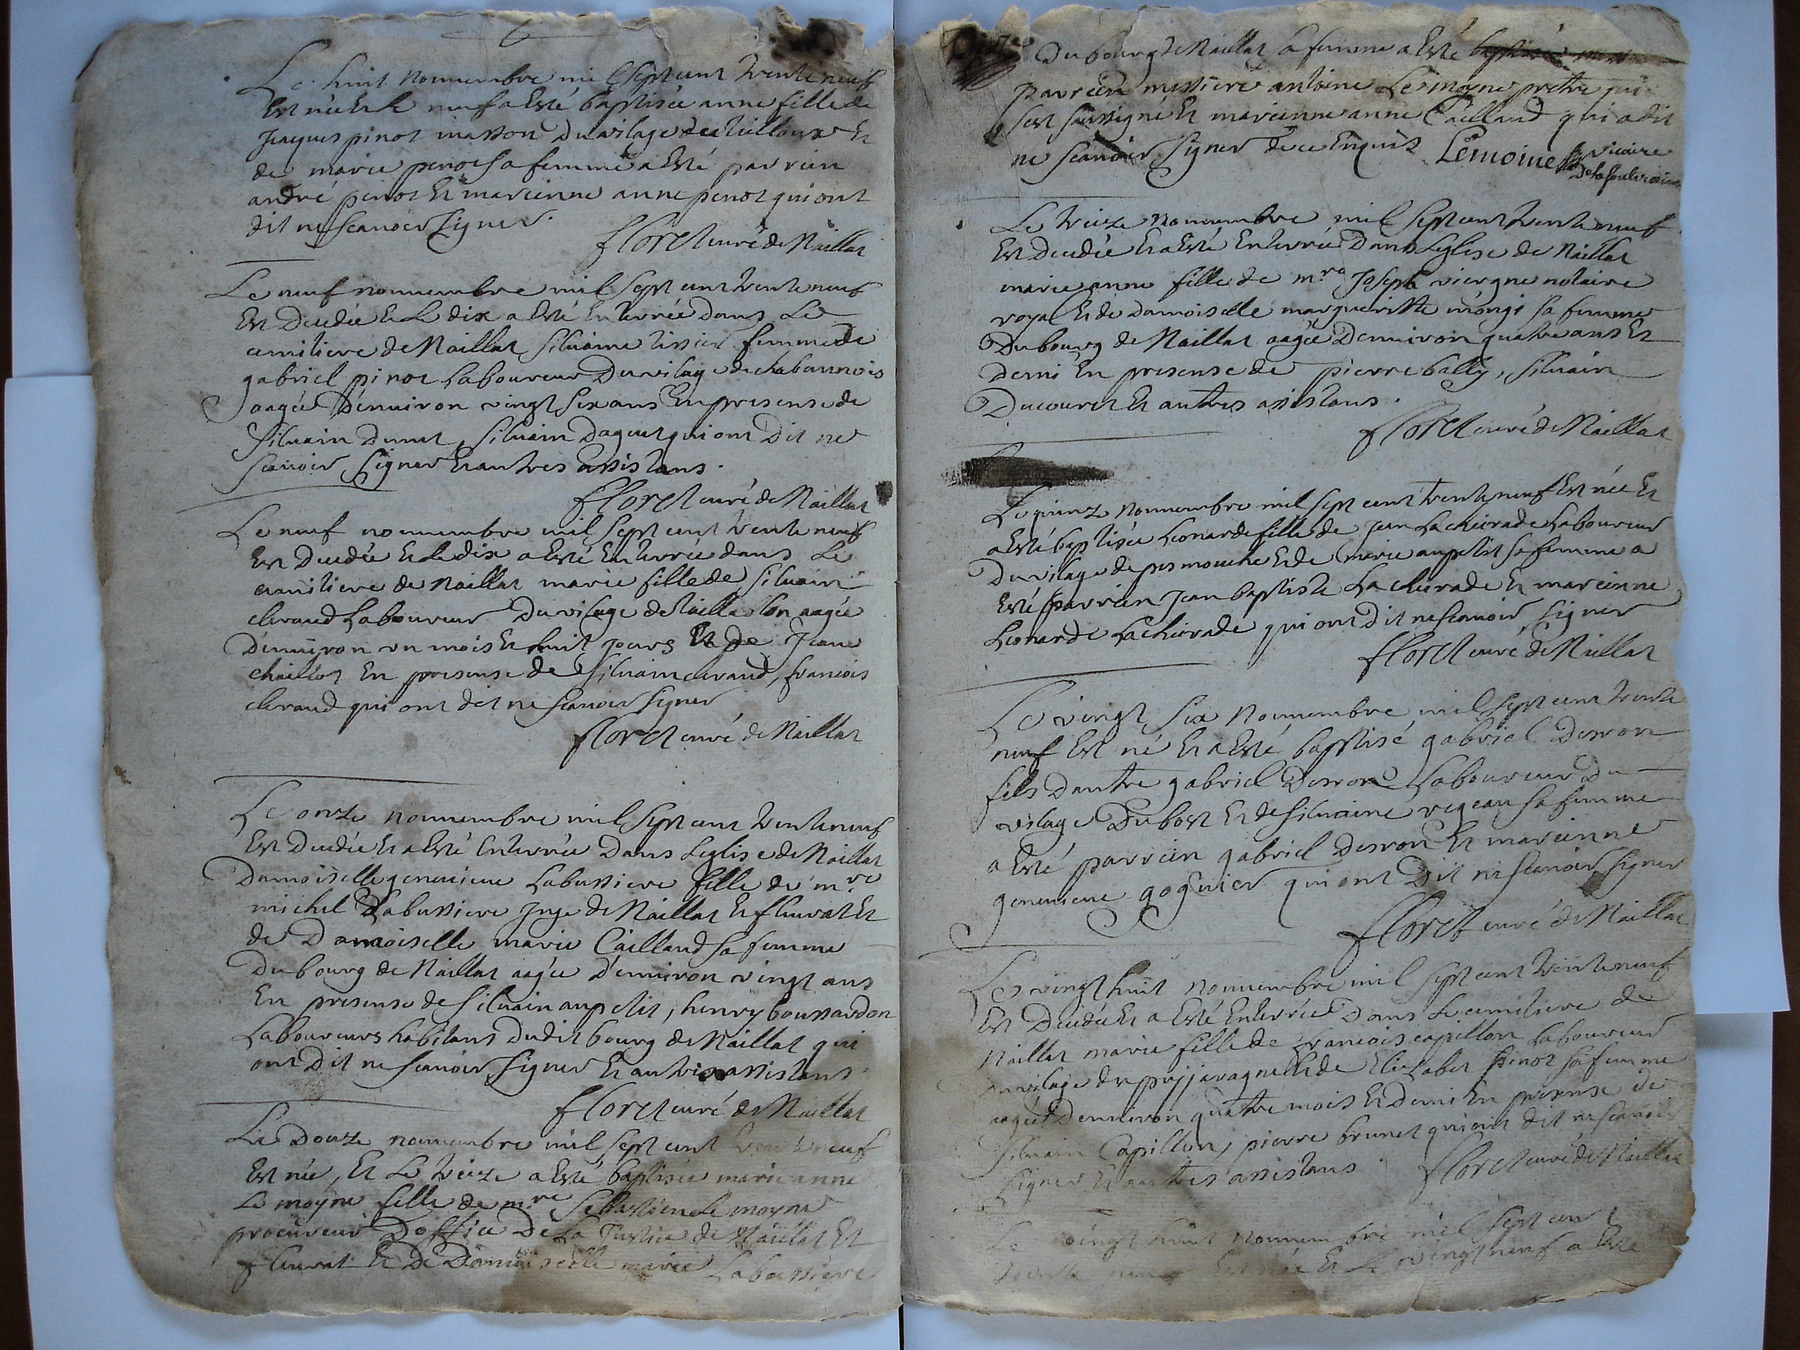 Le huit nouuembre mil sept cent trente neuf
Est née Et le neuf a Esté baptisée anne fille de
Jacques pinot masson du vilage des
de marie penot sa femme a esté parrein
andré penot Et mareinne anne penot qui ont
dit ne scauoir signer.
floret curé de Naillat
Le neuf nouuembre mil sept cent trente neuf
Est decedée Et Le dix a Esté Enterrée dans Le
cemitiere de Naillat, siluaine tissier femme de
gabriel pinot Laboureur du vilage de chabannois
aagée d'enuiron vingt six ans En presense de
siluain Dunet, siluain daguet qui ont Dit ne
scauoir signer Et autres assistans.
floret curé de Naillat
Le neuf nouuembre mil sept cent trente neuf
Est decedée Et le dix a Esté Enterrée dans Le
cemitiere de Naillat marie fille de siluain
Laboureur du vilage de aagée
D'enuiron un mois Et huit jours Et de
En presense de siluain françois
qui ont dit ne scauoir signer
floret curé de Naillat
Le onze nouuembre mil sept cent trente neuf
Est Decedée Et a Esté Enterrée Dans Leglise de Naillat
Damoiselle geneuieue Labussiere fille de mre
michel Labussiere Juge de Naillat Et fleurat Et
de Damoiselle marie Cailland sa femme
Du bourg de Naillat aagée d'enuiron vingt ans
En presense de siluain aupetit, henry boussardon
Laboureurs habitans dudit bourg de Naillat qui
ont Dit ne scauoir signer Et autres assistans.
floret curé de Naillat
Le Douze nouuembre mil sept cent trente neuf
Est née, Et Le treize a Esté baptisée marie anne
Le moyne fille de mre Sebastien Le moyne
procureur Doffice De La Justice de Naillat Et
fleurat Et De Damoiselle marie Labussiere
Du bourg de Naillat sa femme a Esté
parrein messiere antoine Le moyne pretre qui
sest sousigné Et mareinne anne Cailland qui a dit
ne scauoir signer de ce Enquis Lemoine vicaire
De la souterraine
Le treize nouuembre mil sept cent trente neuf
Est decedée Et a Esté Enterrée Dans Leglise de Naillat
marie anne fille de mre Joseph viergne notaire
royal Et de damoiselle margueritte mongi sa femme
Du bourg de Naillat aagée Denuiron quatre ans Et
demi En presense de pierre bally, siluain
Ducouret Et autres assistans.
floret curé de Naillat
Le quinze nouuembre mil sept cent trente neuf Est née Et
a Esté baptisée Leonarde fille de Jean La cheirade Laboureur
Du vilage de Et de marie aupetit sa femme a
Esté parrein Jean baptiste La cheirade Et mareinne
Leonarde Lacheirade qui ont Dit ne scauoir signer
floret curé de Naillat
Le vingt six nouuembre mil sept cent trente
neuf Est né Et a Esté baptisé gabriel Desron
fils Dautre gabriel Desron Laboureur Du
vilage Dubost Et de siluaine rigeau sa femme
a Esté parrein gabriel Desron Et mareinne
geneuieue goguier qui ont Dit ne scauoir signer
floret curé de Naillat
Le vingt huit nouuembre mil sept cent trente neuf
Est Decedée Et a Esté Enterrée Dans Le cemitiere de
Naillat marie fille de françois capillon Laboureur
vilage de Et de Elizabet pinot sa femme
aagée Denuiron quatre mois Et Demi En presense de
siluain Capillon, pierre brunet qui ont dit ne scauoir
signer Et autres assistans.
floret curé de Naillat
Le vingt huit nouuembre mil sept cent
trente neuf Est née Et Le vingt neuf a Esté